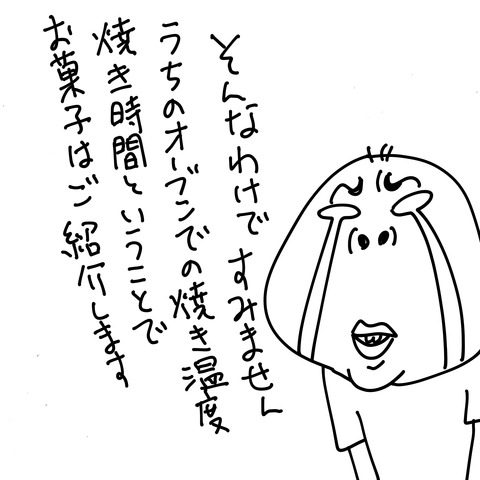 そんなわけですみません
うちのオーブンでの焼き温度
焼き時間ということで
お菓子はご紹介します